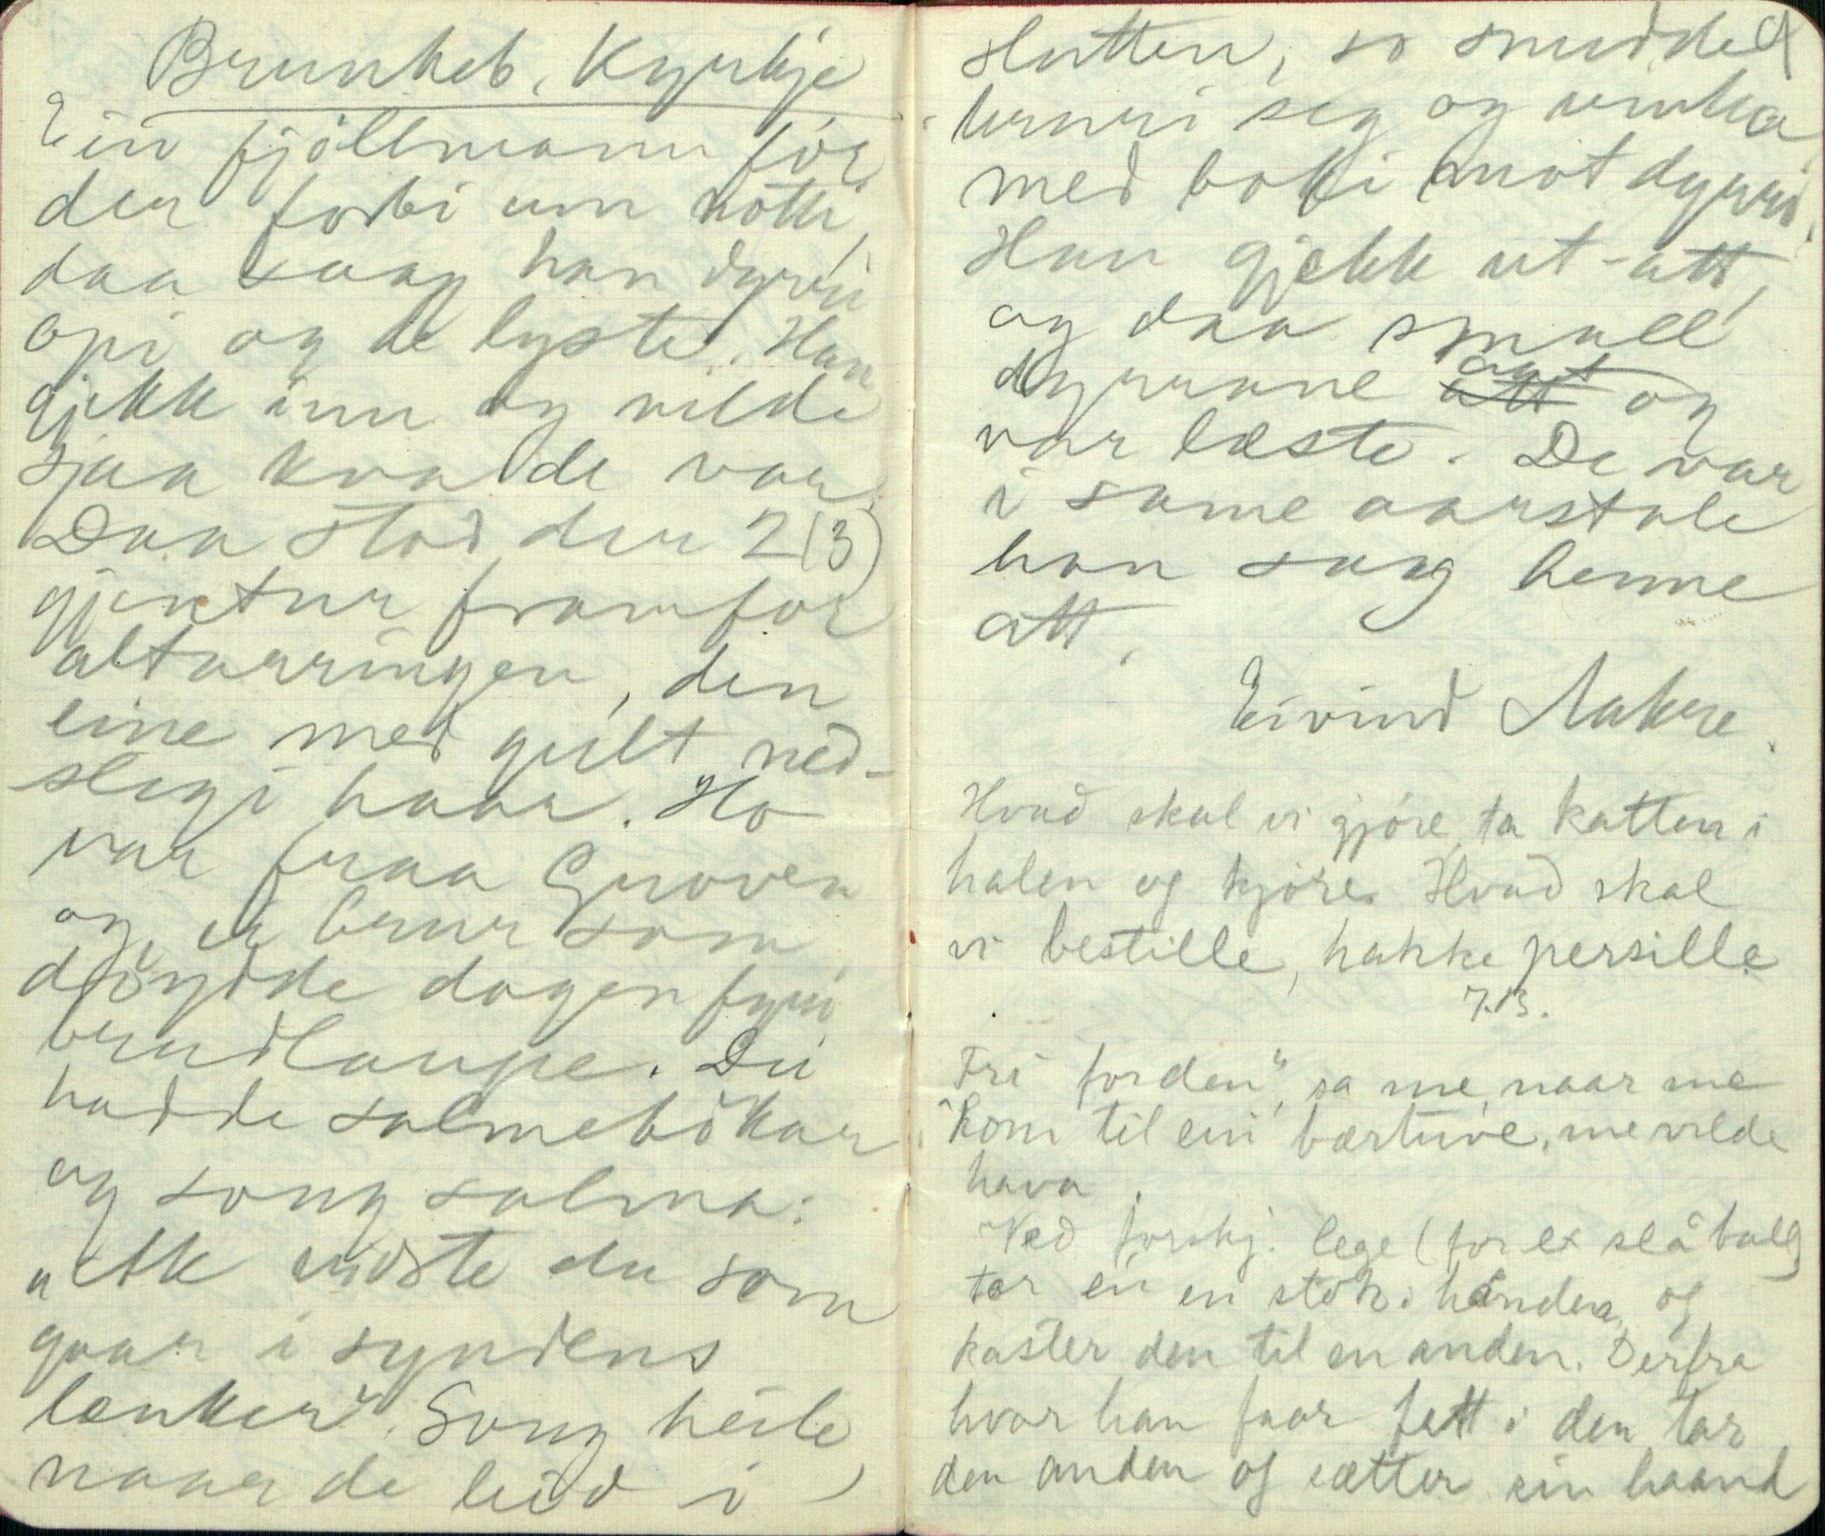 Brunkeb. Kyrkje
Ein fjöllmann fór
der forbi um nótti,
daa saag han dyrri
opi og de lyste. Han
gjekk inn og vilde
sjaa kva de var.
Daa stod der 2 (3)
gjentur framfor
altarringen, den
eine med gult ned-
slegi haar. Ho
var fraa Groven
og ei brur som
döydde dagen fyri
brudlaupe. Dei
hadde salmebökar
og song salma:
"Ak vidste du som
gaar i syndens
lænker". Song heile
naar de leid i
slutten, so snudde
bruri seg og vinka
med boki mot dyrri.
Han gjekk ut-att,
og daa small
dyrrane att og
var læste. De var
i same aarstale
han saag henne
att.
Eivind Aakre.
Hvad skal vi gjöre, ta katten i
halen og kjöre. Hvad skal
vi bestille, hakke persille
7.13.
Fri forden", sa me, naar me
kom til ein bærtuve, me vilde
hava.
Ved forskj. lege (for ex slå ball)
tar en en stok i hånden og
kaster den til en anden. Derfra
hvor han faar fatt i den tar
den anden og sætter sin haand